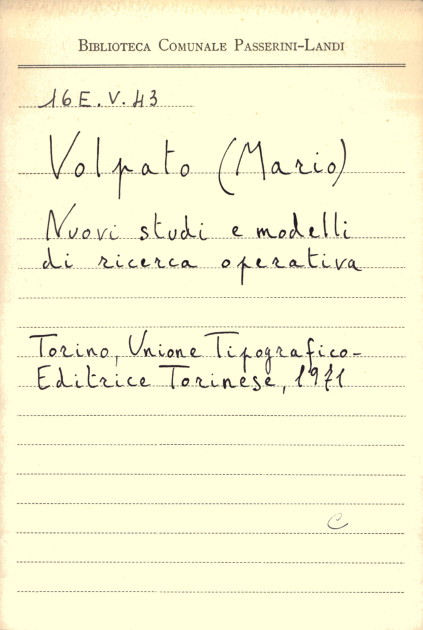 BIBLIOTECA COMUNALE PASSERINI-LANDI
16E.V.43
Volpato (Mario)
Nuovi studi e modelli
di ricerca operativa
Torino, Unione Tipografico-
Editrice Torinese, 1971
C